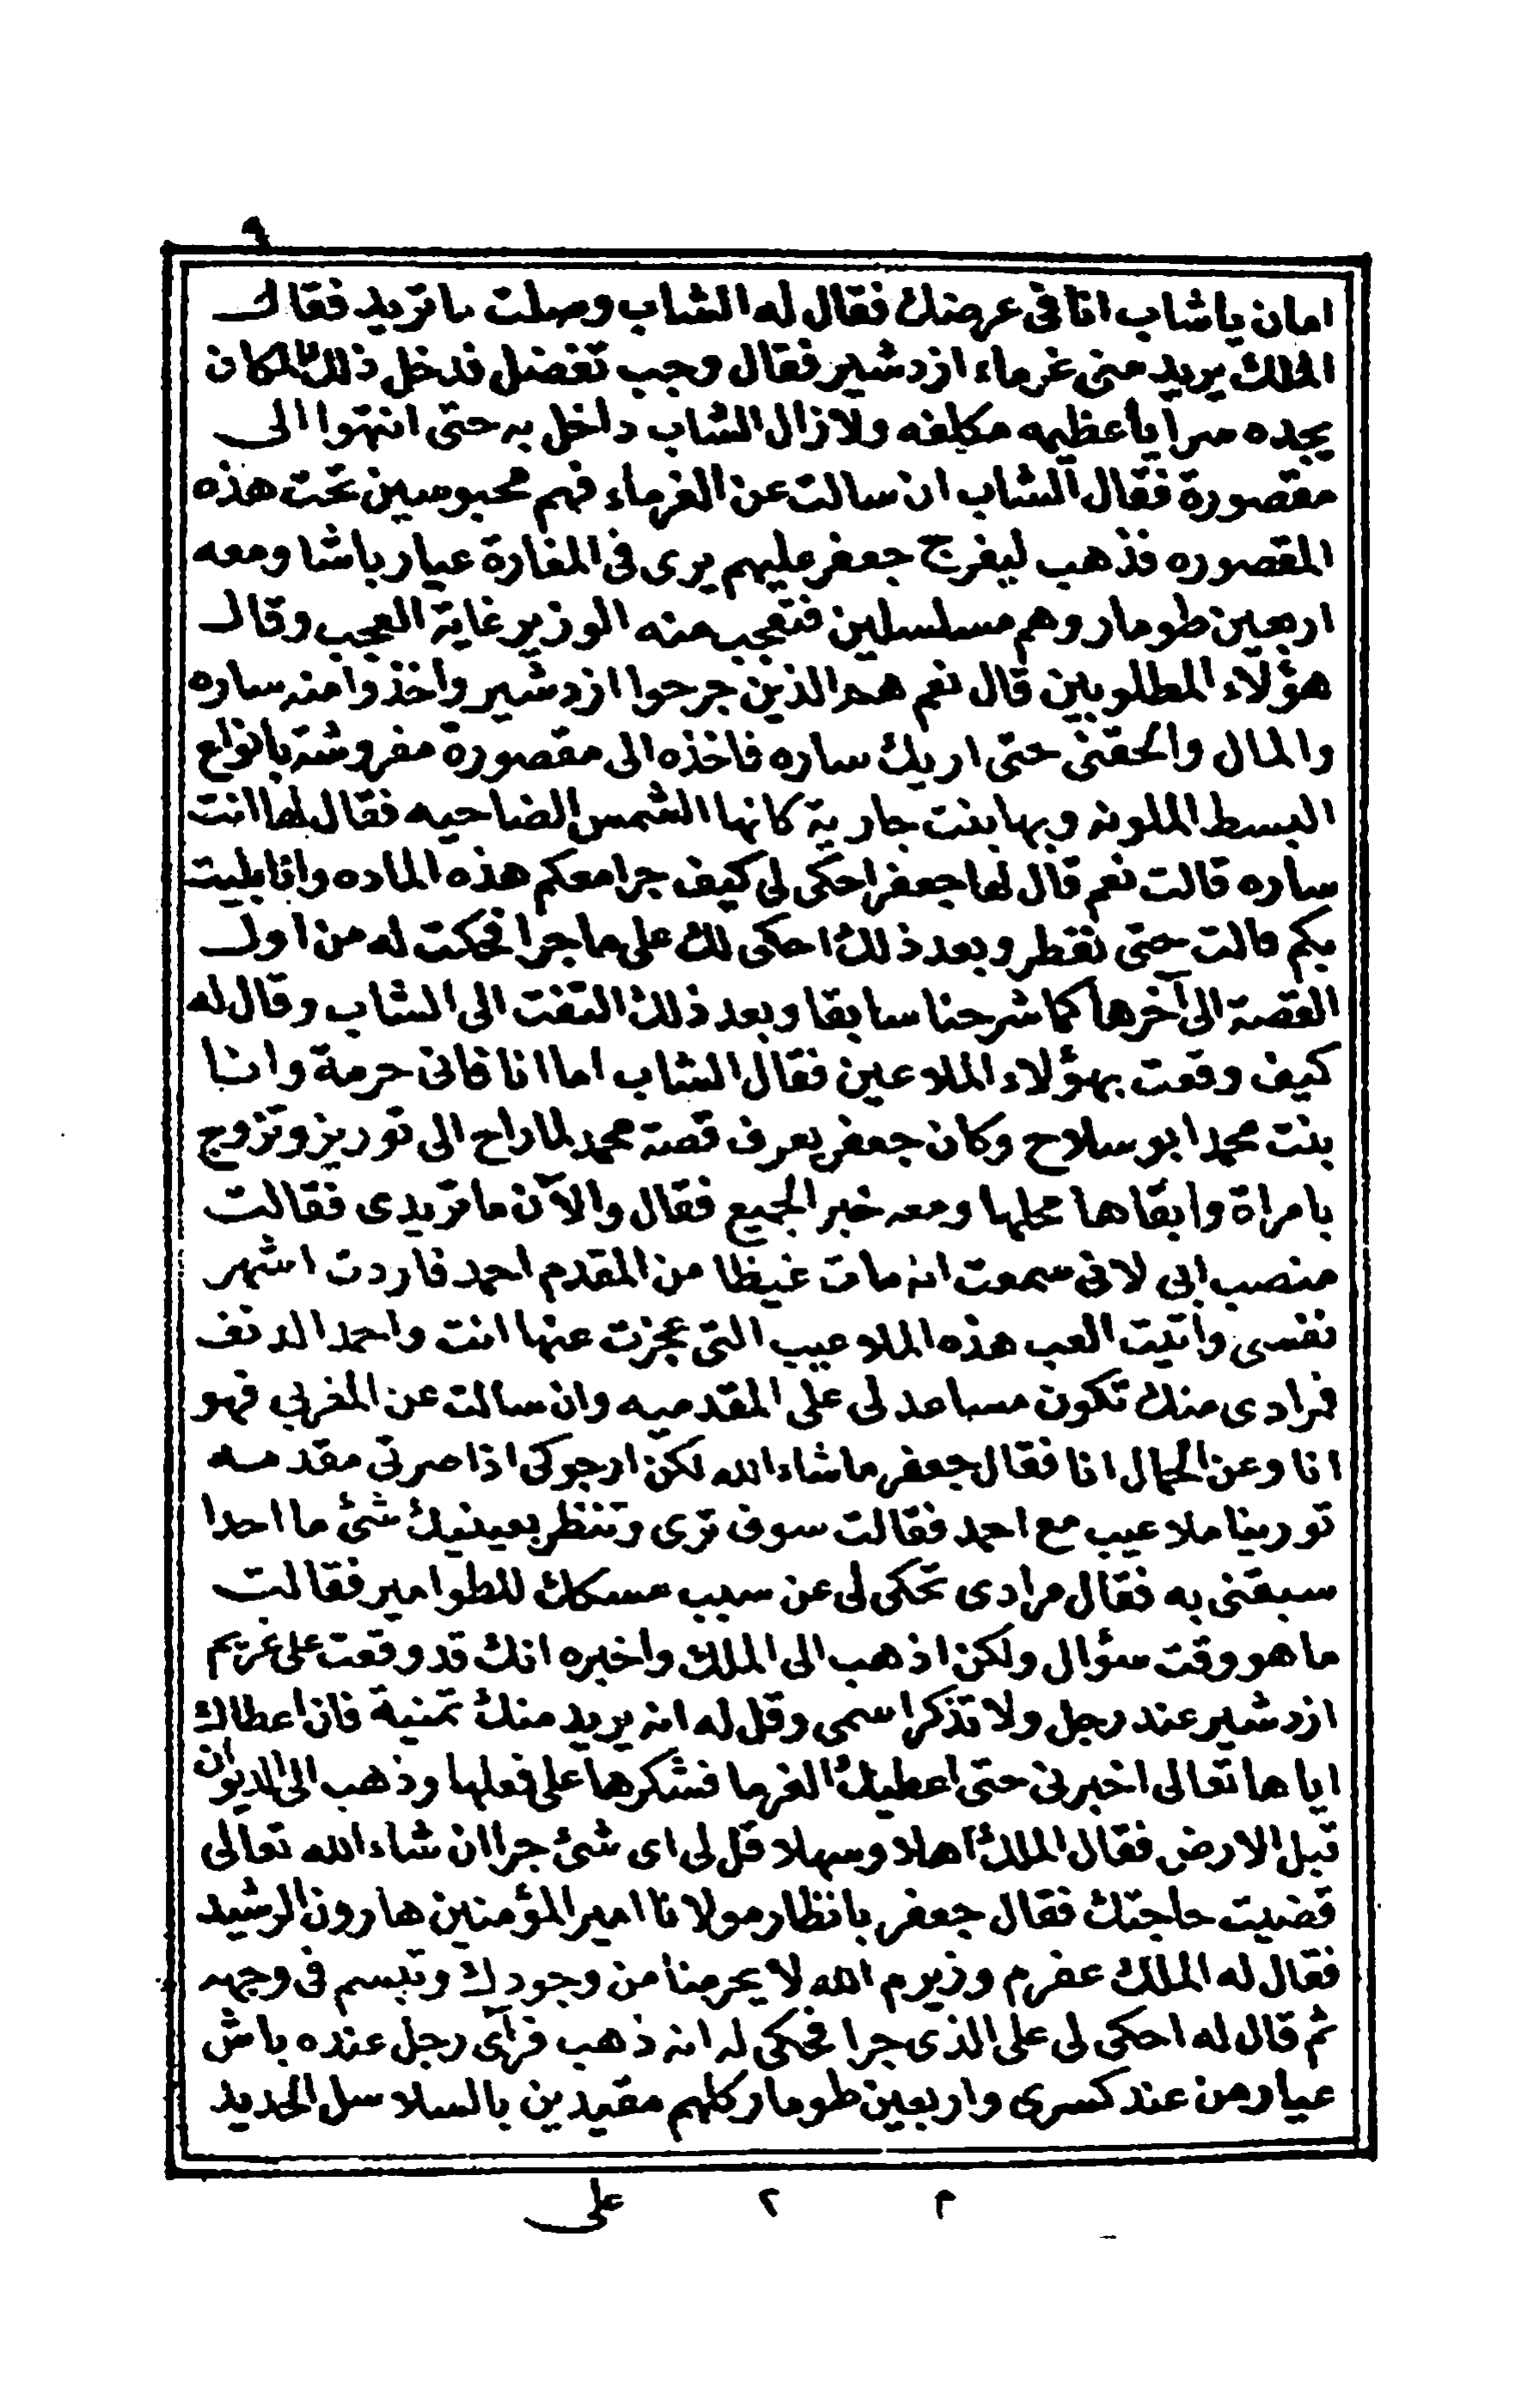 ٩
امان يا شاب انا فى عرضك فقال له الشاب وصلت ما تريد فقال
الملك يريد منى غرماء ازدشير فقال وجب تفضل فدخل ذلك المكان
يجده سرايا عظيمه مكلفه ولا زال الشاب داخل به حتى انتهوا الى
مقصورة فقال الشاب ان سالت عن الغرماء فهم محبوسين تحت هذه
المقصوره فذهب ليفرج جعفر عليهم يرى فى المغارة عيار باشا ومعه
اربعين طومار وهم مسلسلين فتعجب منه الوزير غاية العجب وقال
هؤلاء المطلوبين قال نعم هم الذين جرحوا ازدشير واخذوا منه ساره
والمال والحقنى حتى اريك ساره فاخذه الى مقصورة مفروشة بانواع
البسط الملونه وبها بنت جارية كانها الشمس الضاحيه فقال لها انت
ساره قالت نعم قال لها جعفر احكى لى كيف جرا معكم هذه الماده وانا بليت
بكم قالت حتى نفطر وبعد ذلك احكى لك على ما جرا فحكت له من اول
القصة الى آخرها كما شرحنا سابقا وبعد ذلك التفت الى الشاب وقال له
كيف وقعت بهؤلاء الملاعين فقال الشاب اما انا فانى حرمة وانا
بنت محمد ابو سلاح وكان جعفر يعرف قصة محمد لما راح الى توريز وتزوج
بامراة وابقاها محلها ومعه خبر الجميع فقال والآن ما تريدى فقالت
منصب ابى لانى سمعت انه مات غيظا من المقدم احمد فاردت اشهر
نفسى واتيت العب هذه الملاعيب التى عجزت عنها انت واحمد الدنف
فرادى منك تكون مساعد لى على المقدميه وان سالت عن المغربى فهو
انا وعن الجمال انا فقال جعفر ما شاء الله لكن ارجوكى اذا صرتى مقدمه
تورينا ملاعيب مع احمد فقالت سوف ترى وتنظر بعينيك شئ ما احدا
سبقنى به فقال مرادى تحكى لى عن سبب مسكك للطوامير فقالت
ما هو وقت سؤال ولكن اذهب الى الملك واخبره انك قد وقعت على غريم
ازدشير عند رجل ولا تذكر اسمى وقل له انه يريد منك تمنية فان اعطاك
اياها تعالى اخبرنى حتى اعطيك الغرما فشكرها على فعلها وذهب الى الديوان
قبل الارض فقال الملك اهلا وسهلا قل لى اى شئ جرا ان شاء الله تعالى
قضيت حاجتك فقال جعفر بانظار مولانا امير المؤمنين هارون الرشيد
فقال له الملك عفرم وزيرم الله لا يحرمنا من وجودك وتبسم فى وجهه
ثم قال له احكى لى على الذى جرا فحكى له انه ذهب فرآى رجل عنده باش
عيار من عند كسرى واربعين طومار كلهم مقيدين بالسلاسل الحديد
م ٢ على